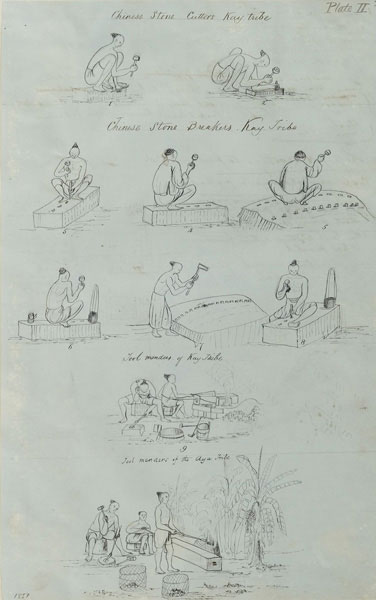 Plate II.
Chinese Stone Cutters Kay tribe
1
2
Chinese Stone Breakers. Kay Tribe
3
4
5
6
7
8
Tool menders of Kay Tribe
9
Tool menders of the Ayn Tribe